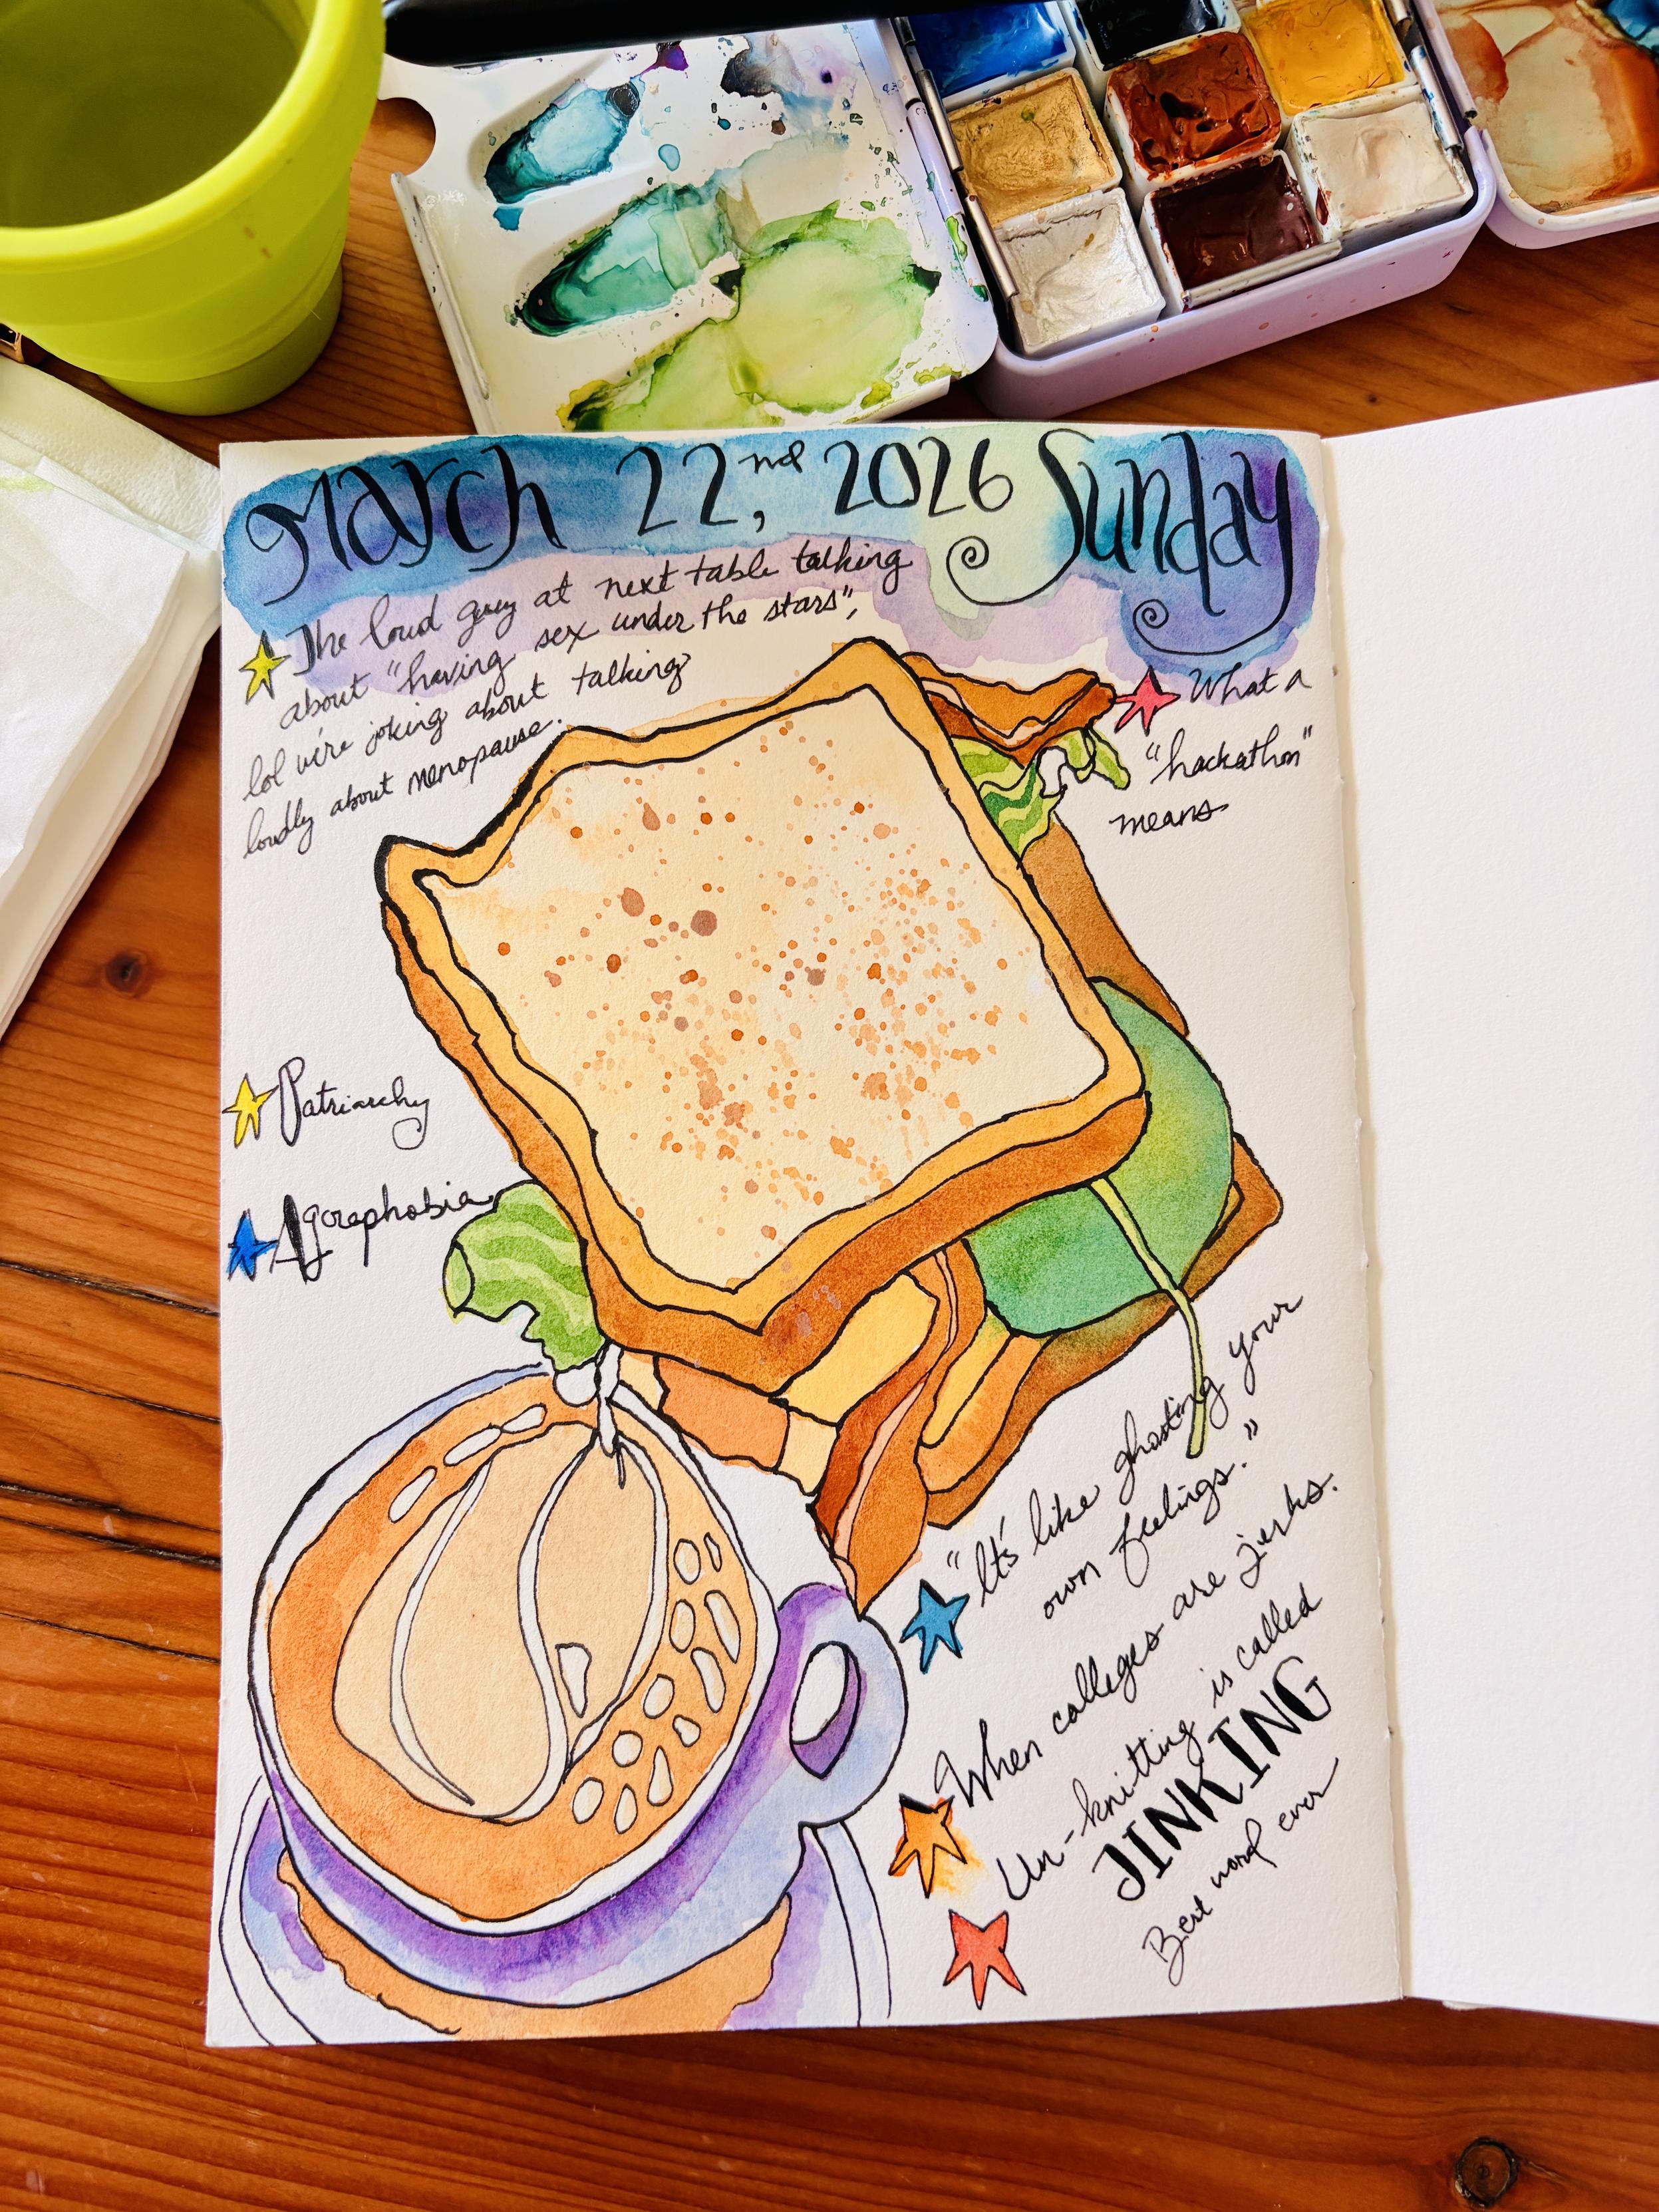 March 22nd, 2026 Sunday
The loud guy at next table talking
about "having sex under the stars",
lol we're joking about talking
loudly about menopause.
What a
"hackathon"
means
Patriarchy
Agoraphobia
"It's like ghosting your
own feelings."
When colleges are jerks.
Un-knitting is called
JINKING
Best word ever